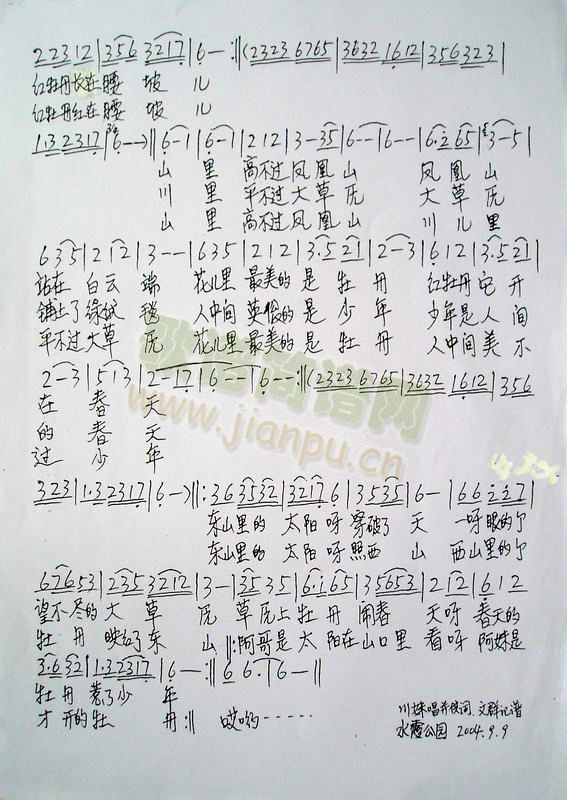 2 2 3 1 2 | 3 5 6 3 2 1 7 | 6 — :‖ (2 3 2 3 6 7 6 5 | 3 6 3 2 1 6 1 2 | 3 5 6 3 2 3 |
红牡丹长在腰 坡 儿
红牡丹红在腰 坡 儿
1·3 2 3 1 7 | 6 —) ‖ 6 — 1 | 6 — 1 | 2 1 2 | 3 — 3 5 | 6 — — | 6 — — | 6·2 6 5 | 3 — 5 |
山 里 高不过凤凰山 凤凰山
川 里 平不过大草原 大草原
山 里 高不过凤凰山 川儿里
6 3 5 | 2 1 2 | 3 — — | 6 3 5 | 2 1 2 | 3·5 2 1 | 2 — 3 | 6 1 2 | 3·5 2 1 |
站在 白云 端 花儿里 最美的 是 牡 丹 红牡丹 它 开
铺上了绿绒 毯 人中间 英俊的 是 少 年 少年是 人 间
平不过大草 原 花儿里 最美的 是 牡 丹 人中间 美 不
2 — 3 | 5 1 3 | 2 — 1 7 | 6 — — | 6 — — :‖ (2 3 2 3 6 7 6 5 | 3 6 3 2 1 6 1 2 | 3 5 6
在 春 天
的 春 天
过 少 年
www.jianpu.cn
3 2 3 | 1·3 2 3 1 7 | 6 —) ‖: 3 6 3 5 3 2 | 3 2 1 7 6 | 3 5 3 5 | 6 — | 6 6 2 2 7 |
东山里的 太阳呀 穿破了 天 一呀眼的个
东山里的 太阳呀 照西 山 西山里的个
6 7 6 5 3 | 2 3 5 3 2 1 2 | 3 — | 3 5 3 5 | 6·1 6 5 | 3 5 6 5 3 | 2 1 2 | 6 1 2
望不尽的 大 草 原 草原上 牡 丹 闹春 天呀 春天的
牡 丹 映红了东 山 ‖: 阿哥是 太 阳在山口里 看呀 阿妹是
3·6 3 2 | 1·3 2 3 1 7 | 6 — :‖ 6 6 · | 6 — ‖
牡丹 惹了少 年
才 开的牡 丹 :‖ 哎哟······
川妹唱并供词、文群记谱
公园 2004.9.9